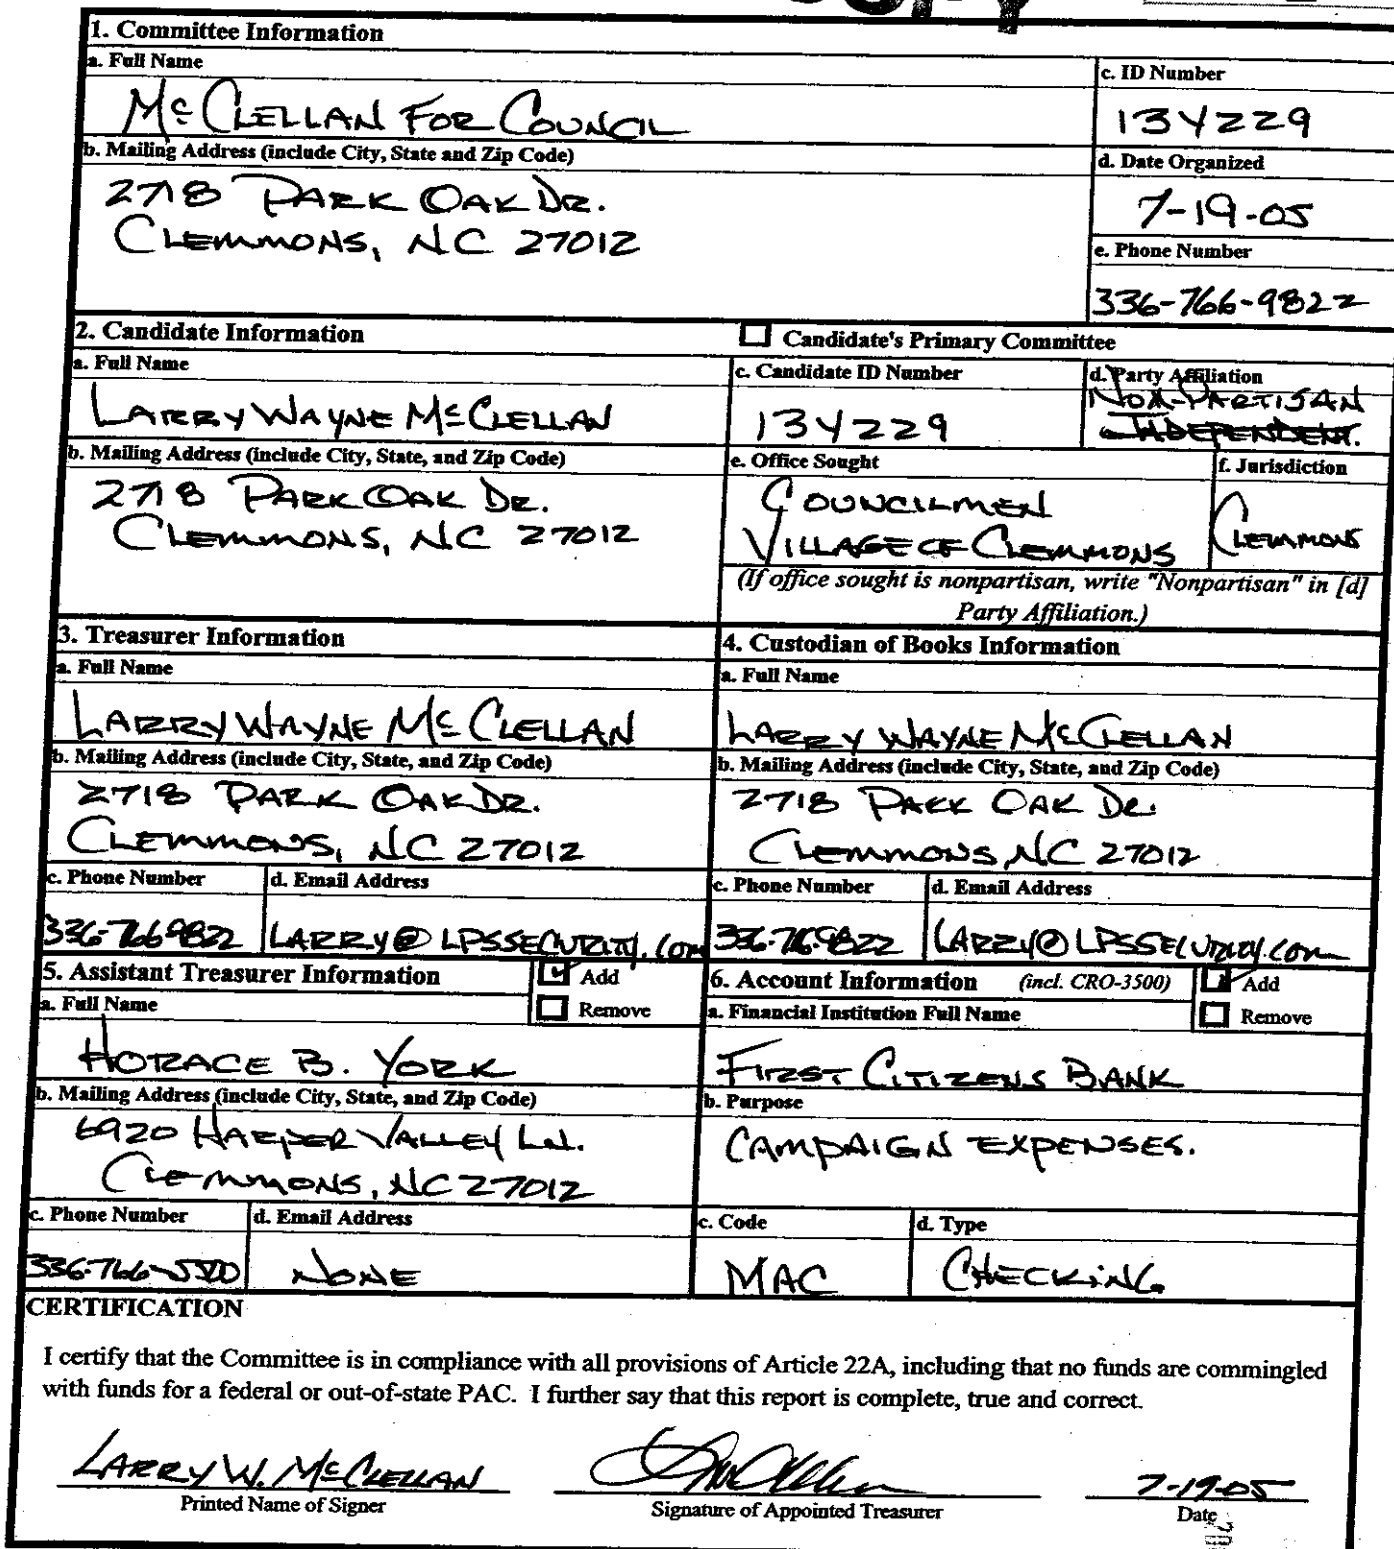 COPY
1. Committee Information
a. Full Name
McCLELLAN FOR COUNCIL
c. ID Number
134229
b. Mailing Address (include City, State and Zip Code)
2718 PARK OAK DR.
CLEMMONS, NC 27012
d. Date Organized
7-19-05
e. Phone Number
336-766-9822
2. Candidate Information
Candidate's Primary Committee
a. Full Name
LARRY WAYNE McCLELLAN
c. Candidate ID Number
134229
d. Party Affiliation
NON-PARTISAN
INDEPENDENT.
b. Mailing Address (include City, State, and Zip Code)
2718 PARK OAK DR.
CLEMMONS, NC 27012
e. Office Sought
COUNCILMEN
VILLAGE OF CLEMMONS
f. Jurisdiction
CLEMMONS
(If office sought is nonpartisan, write "Nonpartisan" in [d]
Party Affiliation.)
3. Treasurer Information
a. Full Name
LARRY WAYNE McCLELLAN
b. Mailing Address (include City, State, and Zip Code)
2718 PARK OAK DR.
CLEMMONS, NC 27012
c. Phone Number
336-766-9822
d. Email Address
LARRY@LPSSECURITY.COM
4. Custodian of Books Information
a. Full Name
LARRY WAYNE McCLELLAN
b. Mailing Address (include City, State, and Zip Code)
2718 PARK OAK DR.
CLEMMONS, NC 27012
c. Phone Number
336-76-9822
d. Email Address
LARRY@LPSSECURITY.COM
5. Assistant Treasurer Information
Add
Remove
a. Full Name
HORACE B. YORK
b. Mailing Address (include City, State, and Zip Code)
6920 HARPER VALLEY LN.
CLEMMONS, NC 27012
c. Phone Number
336-766-5520
d. Email Address
NONE
6. Account Information (incl. CRO-3500)
Add
Remove
a. Financial Institution Full Name
FIRST CITIZENS BANK
b. Purpose
CAMPAIGN EXPENSES.
c. Code
MAC
d. Type
CHECKING
CERTIFICATION
I certify that the Committee is in compliance with all provisions of Article 22A, including that no funds are commingled
with funds for a federal or out-of-state PAC. I further say that this report is complete, true and correct.
LARRY W. McCLELLAN
Printed Name of Signer
Signature of Appointed Treasurer
7-19-05
Date